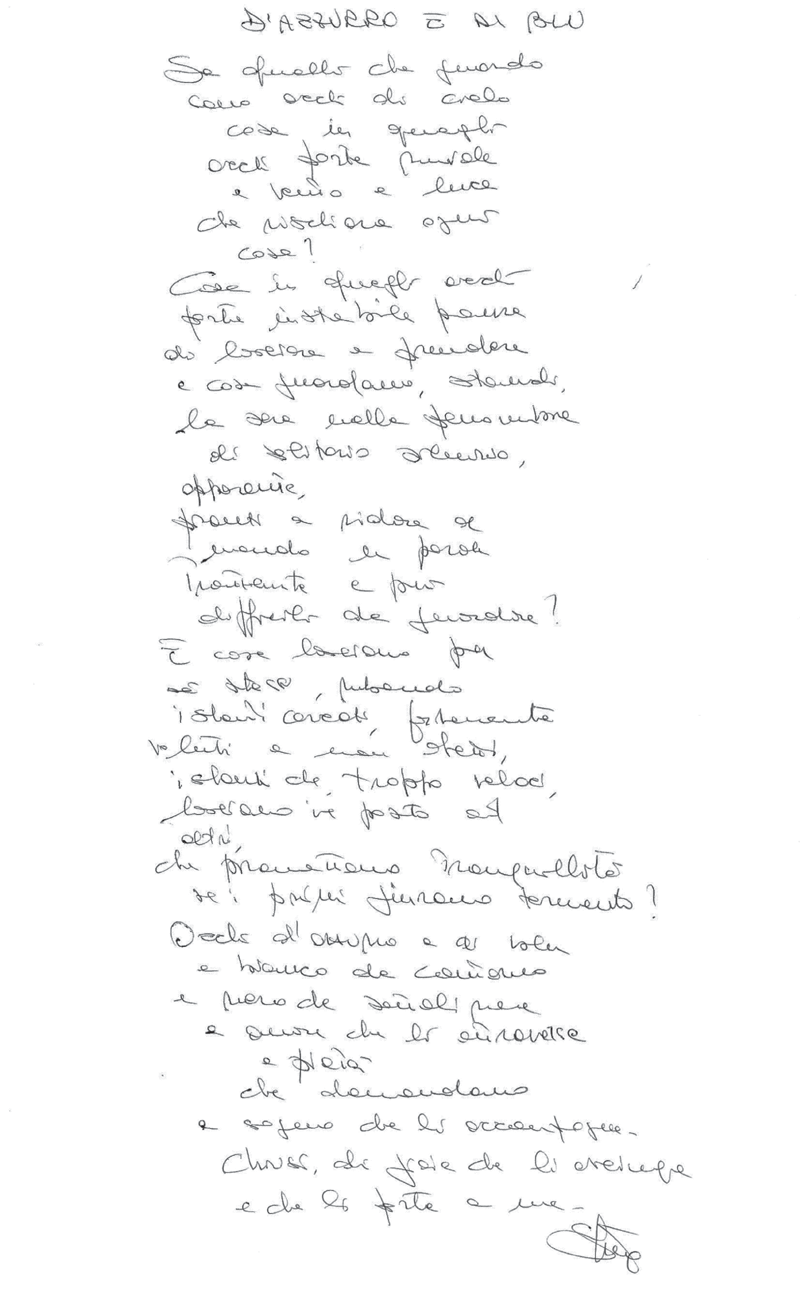 D'AZZURRO E DI BLU
Se quello che guardo
sono occhi di cielo
cosa in quegli
occhi forte prevale
e vento e luce
che rischiara ogni
cosa?
Cosa in quegli occhi
forte instabile paura
di lasciare e prendere
e cosa guardano, stanchi,
la sera nella penombra
di solitario silenzio,
apparente,
pronti a ridere se
quando la parola
e più
difficile da guardare?
E cosa lasciano per
se stessi, rubando
istanti cercati, fortemente
voluti e mai stessi,
istanti che, troppo veloci,
lasciano il posto ad
altri,
che promettono tranquillità
se i primi giurano tormento?
Occhi d'azzurro e di blu
e bianco da
e nero da
e amore che li attraversa
e pietà
che domandano
e sogno che li accompagna.
Chiusi, di gioia che li asciuga
e che li porta a me.